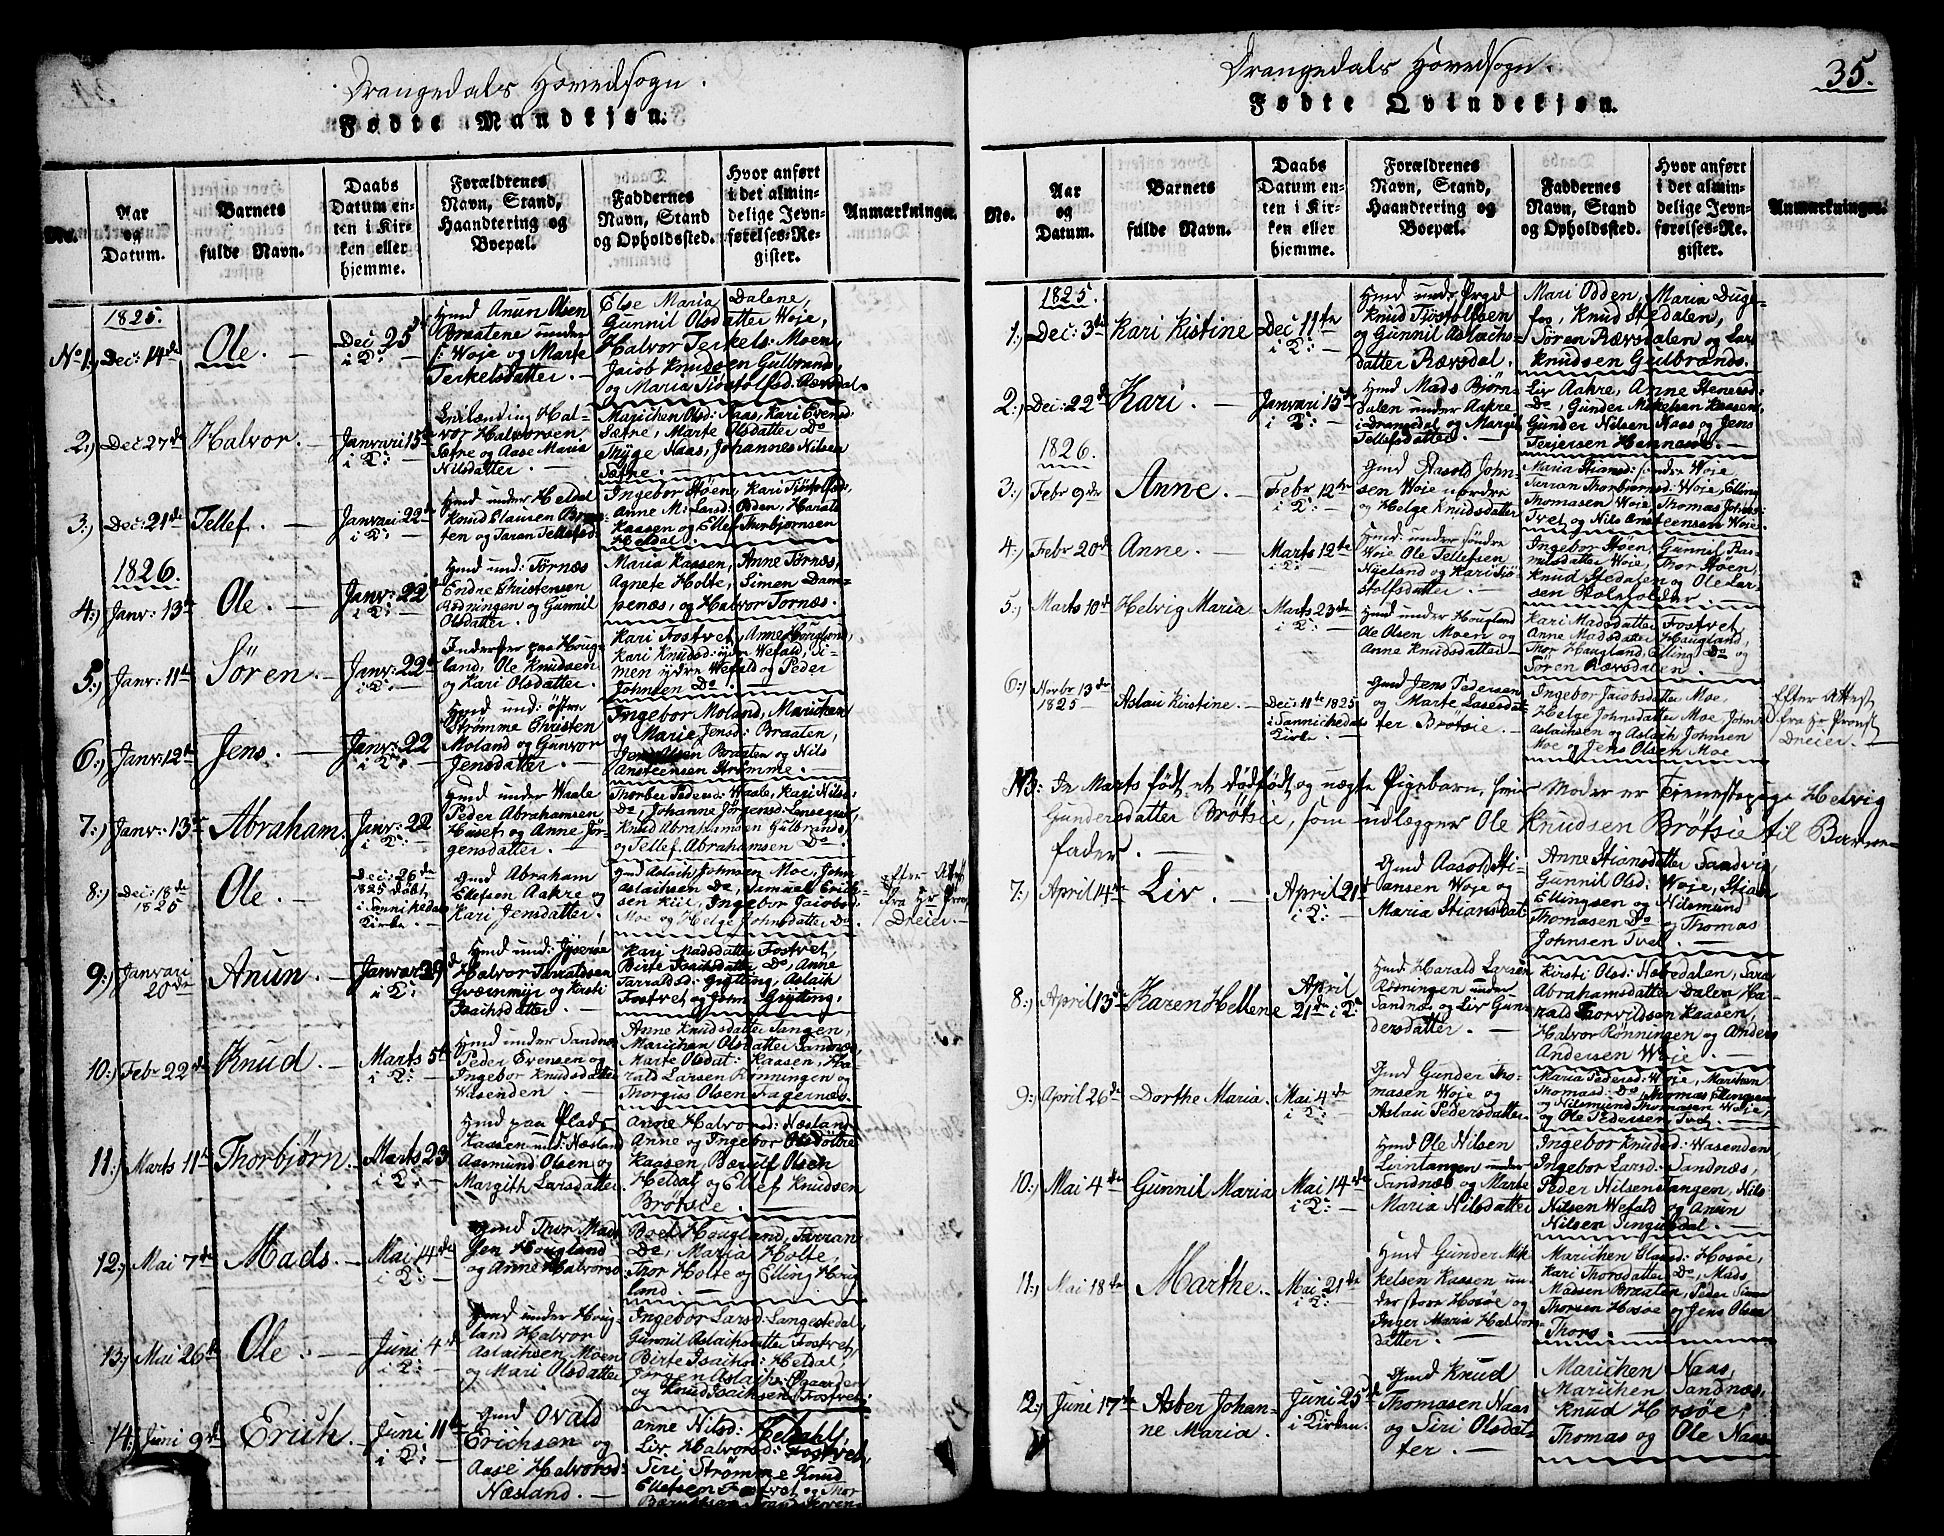 Drangedals Hovedsogn.
Fødte Mandkjøn.
No.
Aar og Datum.
Barnets fulde Navn.
Daabs Datum enten i Kirken eller hjemme.
Forældrenes Navn, Stand, Haandtering og Boepæl.
Faddernes Navn, Stand og Opholdssted.
Hvor anført i det almindelige Jevnførelses-Register.
Anmærkninger.
1825.
No 1.) Dec: 14de
Ole.
Dec: 25de
i K:
Gmd Anun Olsen
Braatene under
Woje og Marte
Terkelsdatter.
Else Maria Dalene,
Gunnil Olsdatter Woje,
Halvor Terkels: Moen,
Jacob Knudsen Gulbrands,
og Maria Tjøstolfsd: Rævsdal
2.) Dec: 27de
Halvor.
Janvari 15de
i K:
Halvor Halvorsen
Sætre og Aase Maria
Nilsdatter.
Marichen Olsd: Naas, Kari Evensd:
Sætre, Marte Olsdatter Do
Thyge Naas, Johannes Nilsen
Sætre.
3.) Dec: 21de
Tellef.
Janvari 22de
i K:
Hmd under Heldal
Knud Clausen
og Taran Tellefsd
Ingebor Støen, Kari Tjøstolfsd:
Anne M: Larsd: Odden, Harald
Kaasen og Ellef Thorbjørnsen
Heldal.
1826.
4.) Janv: 13de
Ole.
Janv: 22de
i K:
Hmd und: Tørnæs
Endre Christensen
Rødningen og Gunnil
Olsdatter.
Maria Kaasen, Anne Tørnæs,
Agnete Holte, Simen Dam-
penæs, og Halvor Tørnæs.
5.) Janv: 11te
Søren.
Janv: 22de
i K:
Inderster paa Houg-
land, Ole Knudsen
og Kari Olsdatter.
Kari Fostvet, Anne Hougland,
Kari Knudsd: ydre Wefald, Si-
men ydre Wefald og Peder
Johnsen Do
6.) Janv: 12te
Jens.
Janv: 22
i K:
Hmd und: østre
Strømme Christen
Moland og Gunvor
Jensdatter.
Ingebor Moland, Marichen
og Marie Jensd: Braaten,
Olsen Braaten og Nils
Ansteensen Strømme.
7.) Janv: 13de
Abraham.
Janv: 22
i K:
Gmd under Waale
Peder Abrahamsen
Huset og Anne Jør-
gensdatter.
Thorber Pedersd: Waale, Kari Nilsd:
Do, Johanne Jørgensd:
Knud Abrahamsen Gulbrands
og Tellef Abrahamsen Do
8.) Dec: 18de
1825
Ole.
Dec: 26de
1825 døbt
i Sannikedals
Kirke.
Gmd Abraham
Ellefsen Aakre og
Kari Jensdatter.
Aslach Johnsen Moe, John
Aslachsen Do, Samuel Erich-
sen Kiil, Ingebor Jacobsd:
Moe og Helge Johnsdatter Do.
Efter Attest
fra Hr Provst
Dreier.
9.) Janvari
20de
Anun.
Janvar 29de
i K:
Hmd und:
Halvor Tarraldsen
Kværnmyr og Kirsti
Isachsdatter.
Kari Madsdatter Fostvet,
Birte Isachsdatter Do, Anne
Tarraldsd: Gjytting, Aslach
Fostvet og John Gjytting,
10.) Febr 22de
Knud
Marts 5te
i K:
Hmd under Sandnæs
Peder Evensen og
Ingebor Knudsdatter
Wasenden.
Anne Knudsdatter Tangen,
Marichen Olsdatter Sandnæs,
Marte Olsdat: Kaasen, Ha-
rald Larsen Rønningen og
Thorgus Olsen Fagernæs.
11.) Marts 11te
Thorbjørn.
Marts 23
i K:
Hmd paa Plads
Kaasen und: Næsland
Aasmund Olsen og
Margith Larsdatter.
Anne Halvorsd: Næsland
Anne og Ingebor Olsdøttre
Kaasen, Bærulf Olsen
Heldal og Ellef Knudsen
Brøtsie.
12.) Mai 7de
Mads.
Mai 14de
i K:
Gmd Thor Mad-
sen Hougland
og Anne Halvorsd
Boel Hougland, Tarran
Do, Maria Holte,
Thor Holte og Elling Houg
land.
13.) Mai 26de
Ole.
Juni 4de
i K:
Hmd under Houg-
land Halvor
Aslachsen Moen
og Mari Olsdatter
Ingebor Larsd: Langestedal,
Gunnil Aslachsdatter Fostvet,
Birte Isachsd: Heldal,
Jørgen Aslachs: Øgaarden
og Knud Isachsen Fostvet.
14.) Juni 9de
Erich.
Juni 11te
i K:
Gmd Ovald
Erichsen og
Aase Halvorsd:
Næsland.
Anne Nilsd:
Liv Halvorsd: Fostvet,
Siri Strømme Knud
Ellefsen Fostvet og Thor
Drangedals Hovedsogn.
35.
Fødte Qvindekjøn.
No.
Aar og Datum.
Barnets fulde Navn.
Daabs Datum enten i Kirken eller hjemme.
Forældrenes Navn, Stand, Haandtering og Boepæl.
Faddernes Navn, Stand og Opholdssted.
Hvor anført i det almindelige Jevnførelses-Register.
Anmærkninger.
1825.
1.) Dec: 3de
Kari Kistine
Dec 11te
i K:
Knud Tjøstolfsen
og Gunnil Aslachs-
datter Rævsdal.
Mari Odden, Maria Duge-
fos, Knud Stedalen,
Søren Rævsdalen og Lars
Knudsen Gulbrands.
2.) Dec: 22de
Kari.
Janvari 15de
i K:
Hmd Mads Bjørn-
dalen under Aakre
i Drangedal og Margit
Tellefsdatter.
Liv Aakre, Anne Stenersd:
Do, Gunder Mikelsen Kaasen,
Gunder Nilsen Naas og Jens
Terjersen Hegnaas.
1826.
3.) Febr 9de
Anne.
Febr 12te
i K:
Gmd Aasold John-
sen Woje nordre
og Helge Knudsdatter
Maria Stiansd: søndre Woje,
Tarran Thorbjørnsd: Woje, Elling
Thomasen Woje, Thomas Johns:
Tvet og Nils Ansteensen Woje.
4.) Febr 20de
Anne.
Marts 12te
i K:
Hmd: under søndre
Woje Ole Tellefsen
Nyeland og Kari Tjø-
stolfsdatter.
Ingebor Støen, Gunnil Ras-
musdatter Woje, Thor Støen,
Knud Stedalen og Ole Lar-
sen Stolsfolder
5.) Marts 10de
Helvig Maria
Marts 23de
i K:
Hmd under Hougland
Ole Olsen Moen og
Anne Knudsdatter
Kari Madsdatter Fostvet,
Anne Madsdatter Haugland,
Thor Haugland, Elling Do og
Søren Rævsdalen.
6.) Novbr 13de
1825
Aslau Kirstine.
Dec: 11te 1825
i Sannichedals
Kirke.
Gmd Jens Pedersen
og Marte Larsdat-
ter Brøtsie.
Ingebor Jacobsdatter Moe,
Helge Johnsdatter Moe, John
Aslachsen og Aslach Johnsen
Moe og Jens Olsen Moe
Efter Attest
fra Hr Provst
Dreier.
NB: In Marts født et dødfødt og uægte Pigebarn, hvis Moder er Tjenestepige Helvig
Gundersdatter Brøtsie, som udlægger Ole Knudsen Brøtsie til Barne-
fader.
7.) April 14de
Liv.
April 21de
i K:
Gmd Aasold Sti-
ansen Woje og
Maria Stiansdat
Anne Stiansdatter Sandvig,
Gunnil Olsd: Woje, Stian
Ellingsen og Nilsmund
Thomasen Do og Thomas
Johnsen Tvet.
8.) April 13de
Karen Hellene
April
21de i K:
Hmd Harald Larsen
Rønningen under
Sandnæs og Liv Gun-
dersdatter.
Kirsti Olsd: Hæredalen, Sara
Abrahamsdatter Dalen, Ha-
rald Thorvildsen Kaasen,
Halvor Rønningen og Anders
Andersen Woje.
9.) April 26de
Dorthe Maria.
Mai 4de
i K:
Gmd Gunder Tho-
masen Woje og
Aslau Pedersdatter
Maria Pedersd: Woje, Marthen
Thomasd: Do, Thomas Ellingsen
og Nilsmund Thomasen Woje,
og Ole Pedersen Tvet.
10.) Mai 4de
Gunnil Maria
Mai 14de
i K:
Hmd Ole Nilsen
Lirntangen under
Sandnæs og Marte
Maria Nilsdatter
Ingebor Knudsd: Wasenden
Ingebor Larsd: Sandnæs,
Peder Nilsen Tangen, Nils
Nilsen Wefald og Anun
Nilsen Tingulsdal.
11.) Mai 18de
Marthe.
Mai 21de
i K:
Hmd Gunder Mi-
kelsen Kaasen un-
der store Hosøe og
Inger Maria Halvors-
datter.
Marichen Clausd: Hosøe,
Kari Thorsdatter Do, Mads
Madsen Braaten, Peder Simon
Thorsen Hosøe og Jens Olsen
Thors.
12.) Juni 17de
Asber Johan-
ne Maria.
Juni 25de
i Kirken.
Gmd Knud
Thomasen Naas
og Siri Olsdat-
ter.
Marichen Naas,
Marichen Sandnæs,
Knud Hosøe,
Thomas og Ole Naas